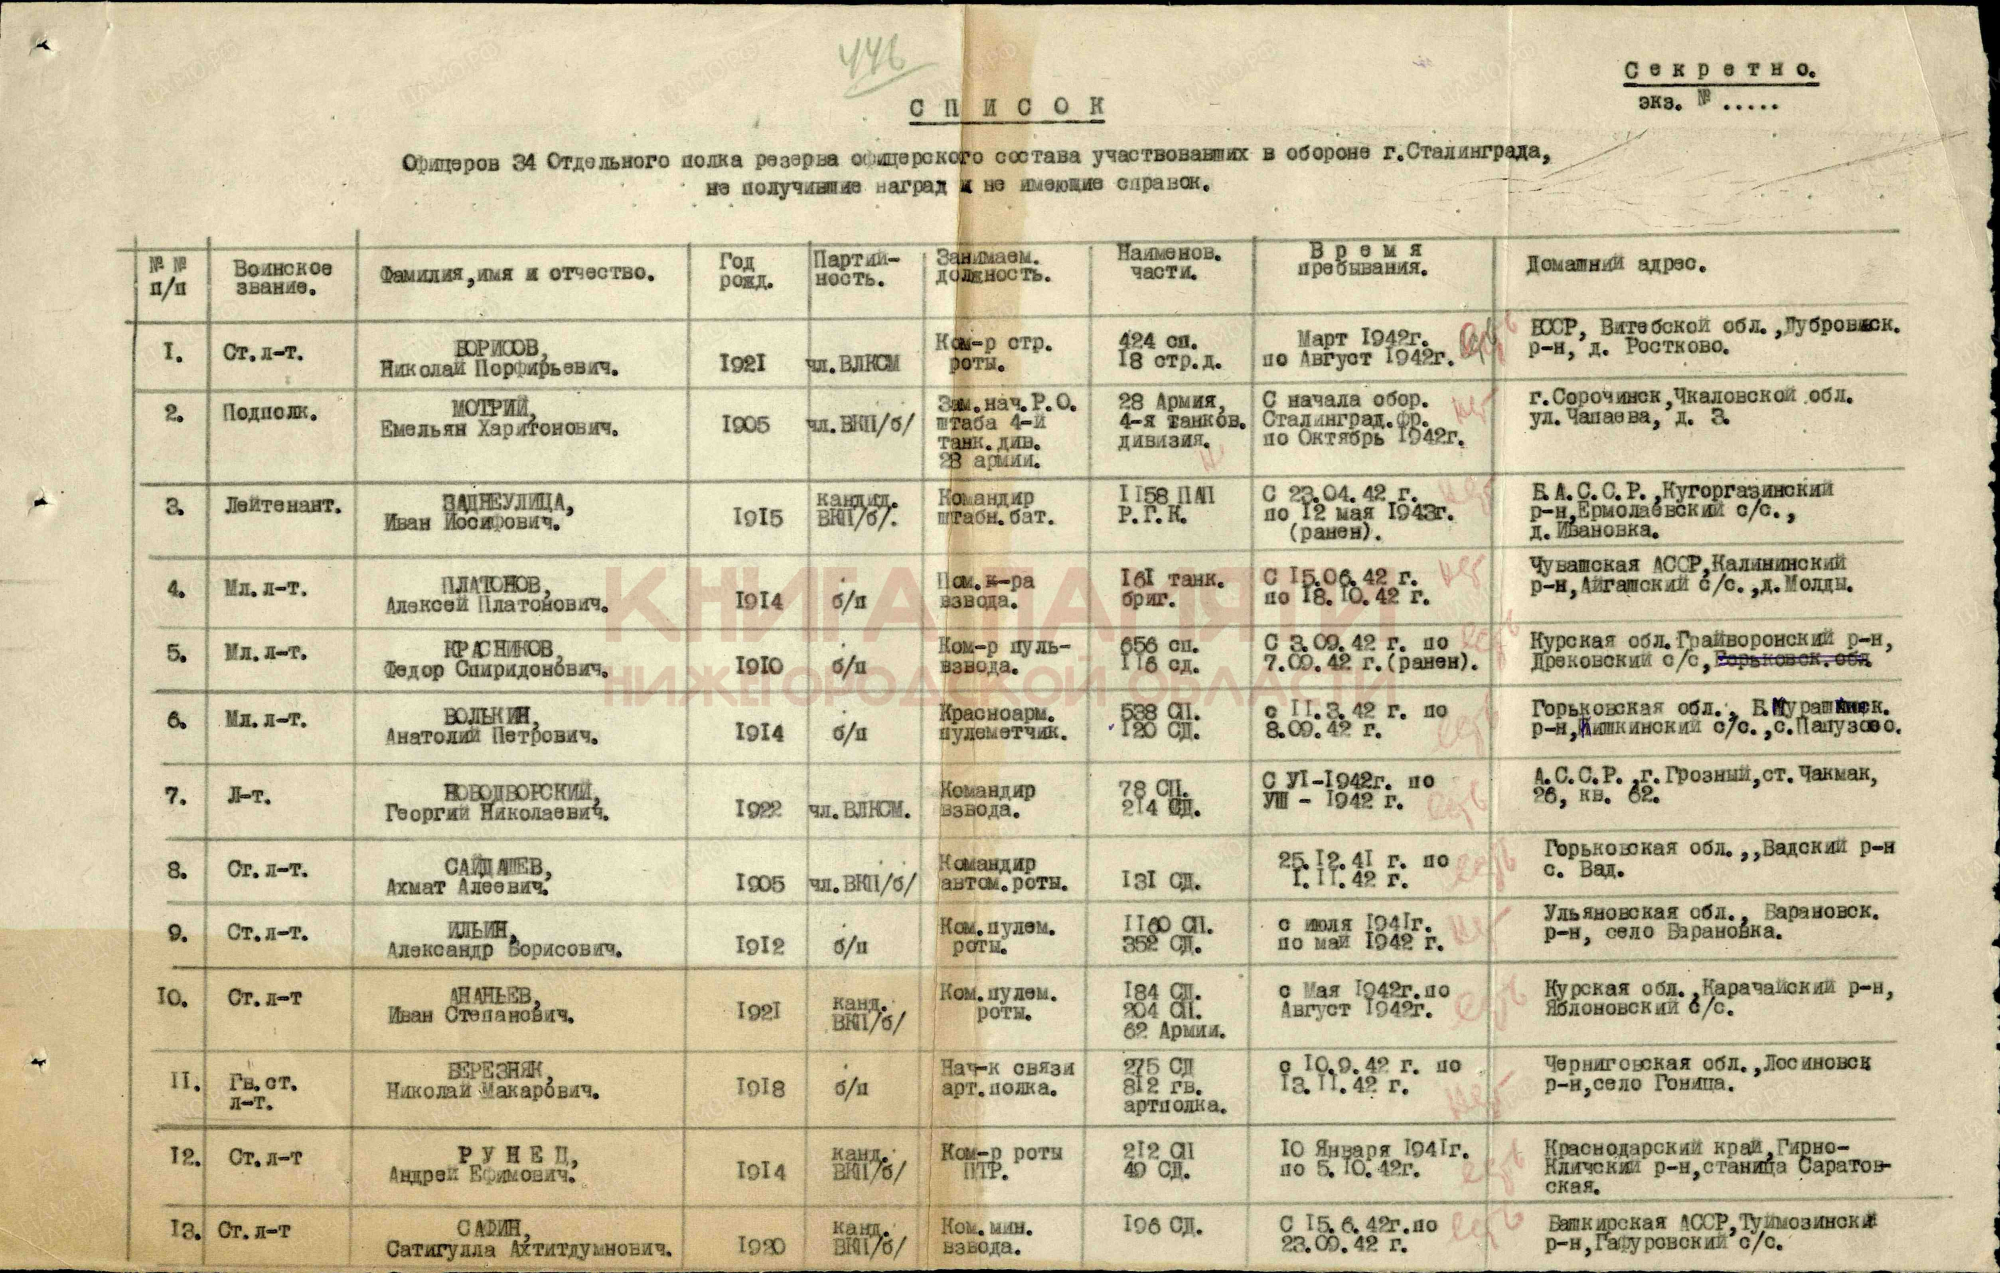 446
Секретно.
экз. № .....
СПИСОК
Офицеров 34 Отдельного полка резерва офицерского состава участвовавших в обороне г.Сталинграда,
не получившие наград и не имеющие справок.
№ № п/п
Воинское звание.
Фамилия,имя и отчество.
Год рожд.
Партий-
ность.
Занимаем.
должность.
Наименов.
части.
Время
пребывания.
Домашний адрес.
1.
Ст.л-т.
БОРИСОВ,
Николай Порфирьевич.
1921
чл.ВЛКСМ
Ком-р стр.
роты.
424 сп.
18 стр.д.
Март 1942г.
по Август 1942г.
есть
БССР, Витебской обл.,Дубровнск.
р-н, д. Ростково.
2.
Подполк.
МОТРИЙ,
Емельян Харитонович.
1905
чл.ВКП/б/
Зам.нач.Р.О.
штаба 4-й
танк.див.
28 армии.
28 Армия,
4-я танков.
дивизия.
С начала обор.
Сталинград.фр.
по Октябрь 1942г.
нет
г.Сорочинск,Чкаловской обл.
ул.Чапаева, д. 3.
3.
Лейтенант.
ЗАДНЕУЛИЦА,
Иван Иосифович.
1915
кандид.
ВКП/б/.
Командир
штабн.бат.
1158 ПАП
Р.Г.К.
С 23.04.42 г.
по 12 мая 1943г.
(ранен).
нет
Б.А.С.С.Р.,Кугоргазинский
р-н,Ермолаевский с/с.,
д.Ивановка.
4.
Мл.л-т.
ПЛАТОНОВ,
Алексей Платонович.
1914
б/п
Пом.к-ра
взвода.
161 танк.
бриг.
С 15.06.42 г.
по 18.10.42 г.
нет
Чувашская АССР,Калининский
р-н,Айгашский с/с.,д.Молды.
5.
Мл.л-т.
КРАСНИКОВ,
Федор Спиридонович.
1910
б/п
Ком-р пуль-
взвода.
656 сп.
116 сд.
С 3.09.42 г. по
7.09.42 г.(ранен).
есть
Курская обл.Грайворонский р-н,
Дрековский с/с,Горьковск.обл
6.
Мл.л-т.
ВОЛЬКИН,
Анатолий Петрович.
1914
б/п
Красноарм.
пулеметчик.
538 СП.
120 СД.
с 11.3.42 г. по
8.09.42 г.
есть
Горьковская обл., Б.Мурашкинск.
р-н,Кишкинский с/с.,с.Папузово.
7.
Л-т.
НОВОДВОРСКИЙ,
Георгий Николаевич.
1922
чл.ВЛКСМ.
Командир
взвода.
78 СП.
214 СД.
С УІ-1942г. по
УШ - 1942 г.
есть
А.С.С.Р.,г.Грозный,ст.Чакмак,
26, кв. 62.
8.
Ст.л-т.
САЙДАШЕВ,
Ахмат Алеевич.
1905
чл.ВКП/б/
Командир
автом.роты.
131 СД.
25.12.41 г. по
1.11.42 г.
есть
Горьковская обл.,,Вадский р-н
с. Вад.
9.
Ст.л-т.
ИЛЬИН,
Александр Борисович.
1912
б/п
Ком.пулем.
роты.
1160 СП.
352 СД.
с июля 1941г.
по май 1942 г.
нет
Ульяновская обл., Барановск.
р-н, село Барановка.
10.
Ст.л-т
АНАНЬЕВ,
Иван Степанович.
1921
канд.
ВКП/б/
Ком.пулем.
роты.
184 СД.
204 СП.
62 Армии.
с Мая 1942г.по
Август 1942г.
есть
Курская обл.,Карачайский р-н,
Яблоновский с/с.
11.
Гв.ст.
л-т.
БЕРЕЗНЯК,
Николай Макарович.
1918
б/п
Нач-к связи
арт.полка.
275 СД
812 гв.
артполка.
с 10.9.42 г. по
13.11.42 г.
нет
Черниговская обл.,Лосиновск
р-н,село Гоница.
12.
Ст.л-т
РУНЕЦ,
Андрей Ефимович.
1914
канд.
ВКП/б/
Ком-р роты
ПТР.
212 СП
49 СД.
10 Января 1941г.
по 5.10.42г.
есть
Краснодарский край,Гирно-
Кличский р-н,станица Саратов-
ская.
13.
Ст.л-т
САФИН,
Сатигулла Ахтитдумнович.
1920
канд.
ВКП/б/
Ком.мин.
взвода.
196 СД.
С 15.6.42г.по
23.09.42 г.
есть
Башкирская АССР,Туймозински
р-н,Гафуровский с/с.
КНИГА ПАМЯТИ
НИЖЕГОРОДСКОЙ ОБЛАСТИ